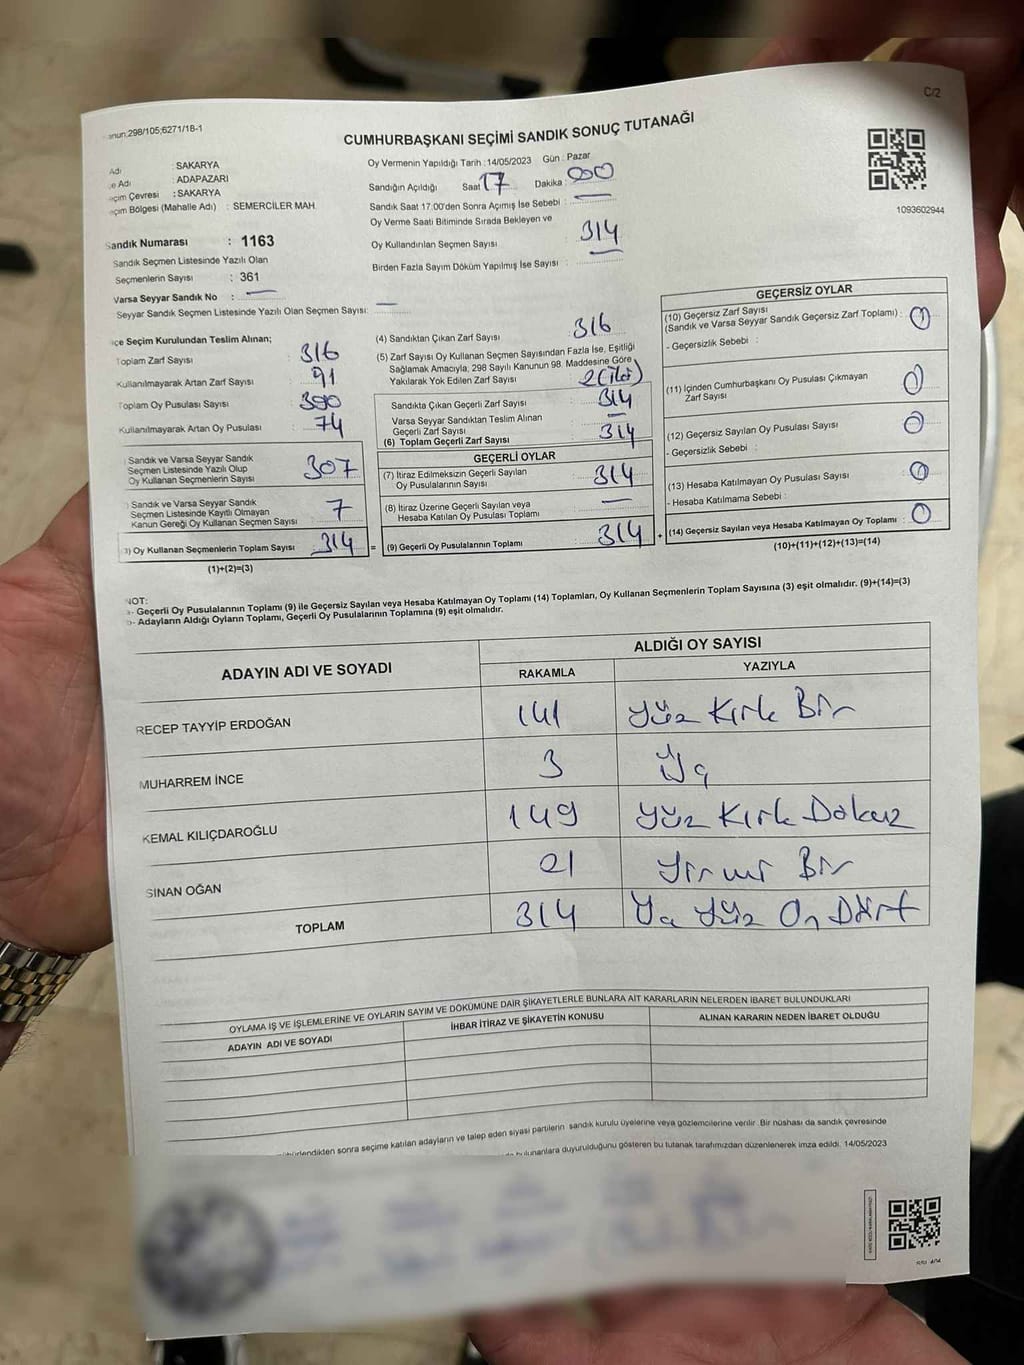 C/2
anun;298/105;6271/1B-1
CUMHURBAŞKANI SEÇİMİ SANDIK SONUÇ TUTANAĞI
Adı : SAKARYA
e Adı : ADAPAZARI
eçim Çevresi : SAKARYA
eçim Bölgesi (Mahalle Adı) : SEMERCİLER MAH.
Sandık Numarası : 1163
Sandık Seçmen Listesinde Yazılı Olan
Seçmenlerin Sayısı : 361
Varsa Seyyar Sandık No : —
Seyyar Sandık Seçmen Listesinde Yazılı Olan Seçmen Sayısı: —
Oy Vermenin Yapıldığı Tarih :14/05/2023 Gün : Pazar
Sandığın Açıldığı Saat 17 Dakika : 00
Sandık Saat 17:00'den Sonra Açımış İse Sebebi : —
Oy Verme Saati Bitiminde Sırada Bekleyen ve
Oy Kullandırılan Seçmen Sayısı : 314
Birden Fazla Sayım Döküm Yapılmış İse Sayısı : —
1093602944
lçe Seçim Kurulundan Teslim Alınan;
Toplam Zarf Sayısı : 316
Kullanılmayarak Artan Zarf Sayısı : 91
Toplam Oy Pusulası Sayısı : 390
Kullanılmayarak Artan Oy Pusulası : 74
Sandık ve Varsa Seyyar Sandık
Seçmen Listesinde Yazılı Olup
Oy Kullanan Seçmenlerin Sayısı : 307
Sandık ve Varsa Seyyar Sandık
Seçmen Listesinde Kayıtlı Olmayan
Kanun Gereği Oy Kullanan Seçmen Sayısı : 7
3) Oy Kullanan Seçmenlerin Toplam Sayısı 314 =
(1)+(2)=(3)
(4) Sandıktan Çıkan Zarf Sayısı : 316
(5) Zarf Sayısı Oy Kullanan Seçmen Sayısından Fazla İse, Eşitliği
Sağlamak Amacıyla, 298 Sayılı Kanunun 98. Maddesine Göre
Yakılarak Yok Edilen Zarf Sayısı : 2 (iki)
Sandıkta Çıkan Geçerli Zarf Sayısı : 314
Varsa Seyyar Sandıktan Teslim Alınan
Geçerli Zarf Sayısı : —
(6) Toplam Geçerli Zarf Sayısı : 314
GEÇERLİ OYLAR
(7) İtiraz Edilmeksizin Geçerli Sayılan
Oy Pusulalarının Sayısı : 314
(8) İtiraz Üzerine Geçerli Sayılan veya
Hesaba Katılan Oy Pusulası Toplamı : —
(9) Geçerli Oy Pusulalarının Toplamı : 314 +
GEÇERSİZ OYLAR
(10) Geçersiz Zarf Sayısı
(Sandık ve Varsa Seyyar Sandık Geçersiz Zarf Toplamı) : 0
- Geçersizlik Sebebi :
(11) İçinden Cumhurbaşkanı Oy Pusulası Çıkmayan
Zarf Sayısı : 0
(12) Geçersiz Sayılan Oy Pusulası Sayısı : 0
- Geçersizlik Sebebi :
(13) Hesaba Katılmayan Oy Pusulası Sayısı : 0
- Hesaba Katılmama Sebebi :
(14) Geçersiz Sayılan veya Hesaba Katılmayan Oy Toplamı : 0
(10)+(11)+(12)+(13)=(14)
NOT:
a- Geçerli Oy Pusulalarının Toplamı (9) ile Geçersiz Sayılan veya Hesaba Katılmayan Oy Toplamı (14) Toplamları, Oy Kullanan Seçmenlerin Toplam Sayısına (3) eşit olmalıdır. (9)+(14)=(3)
b- Adayların Aldığı Oyların Toplamı, Geçerli Oy Pusulalarının Toplamına (9) eşit olmalıdır.
ADAYIN ADI VE SOYADI ALDIĞI OY SAYISI
RAKAMLA YAZIYLA
RECEP TAYYİP ERDOĞAN 141 Yüz Kırk Bir
MUHARREM İNCE 3 Üç
KEMAL KILIÇDAROĞLU 149 Yüz Kırk Dokuz
SİNAN OĞAN 21 Yirmi Bir
TOPLAM 314 Üç Yüz On Dört
OYLAMA İŞ VE İŞLEMLERİNE VE OYLARIN SAYIM VE DÖKÜMÜNE DAİR ŞİKAYETLERLE BUNLARA AİT KARARLARIN NELERDEN İBARET BULUNDUKLARI
ADAYIN ADI VE SOYADI İHBAR İTİRAZ VE ŞİKAYETİN KONUSU ALINAN KARARIN NEDEN İBARET OLDUĞU
sonra seçime katılan adayların ve talep eden siyasi partilerin sandık kurulu üyelerine veya gözlemcilerine verilir. Bir nüshası da sandık çevresinde
bulunanlara duyurulduğunu gösteren bu tutanak tarafımızdan düzenlenerek imza edildi. 14/05/2023